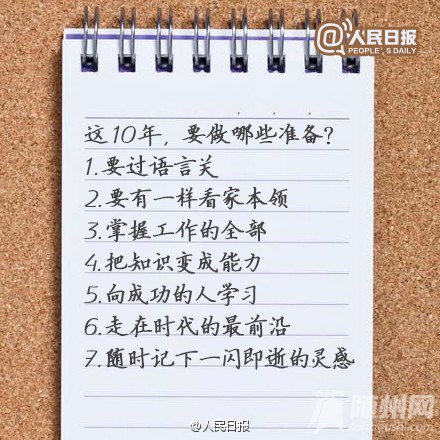 @人民日报
PEOPLE'S DAILY
这10年，要做哪些准备？
1.要过语言关
2.要有一样看家本领
3.掌握工作的全部
4.把知识变成能力
5.向成功的人学习
6.走在时代的最前沿
7.随时记下一闪即逝的灵感
随州网
@人民日报